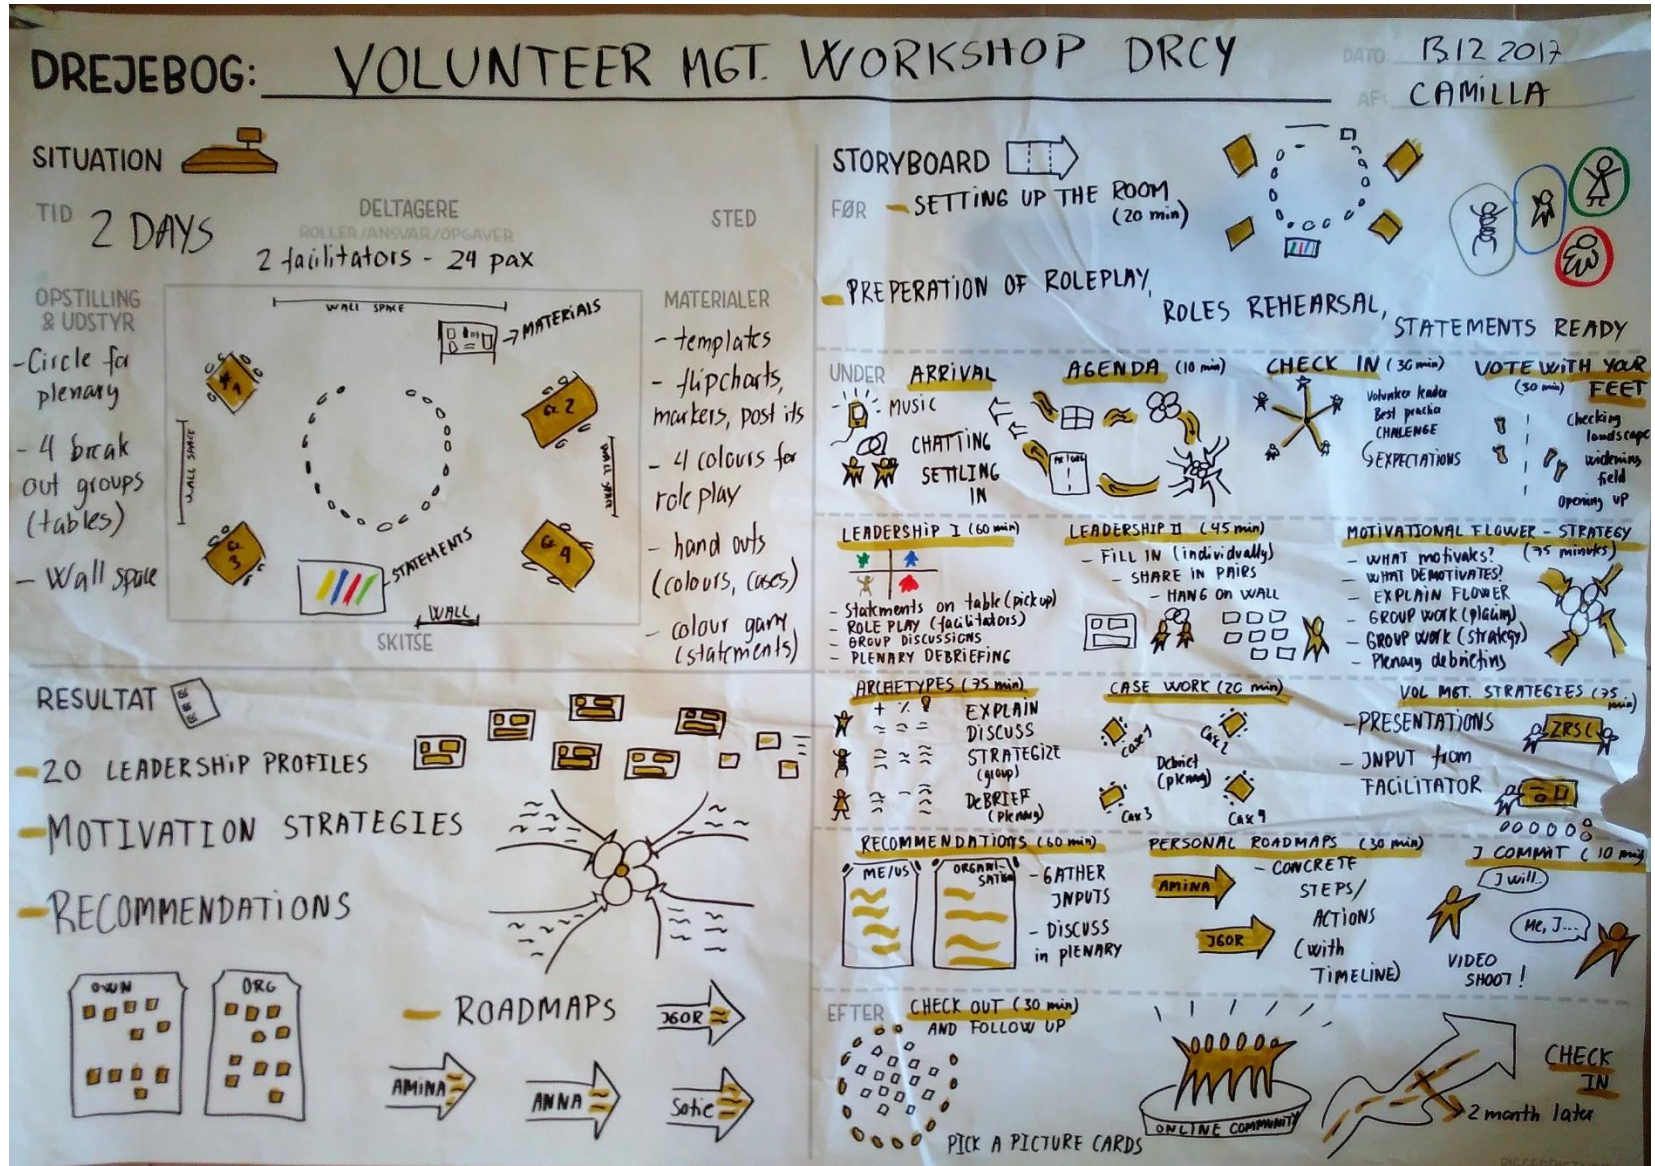 DREJEBOG: VOLUNTEER MGT. WORKSHOP DRCY
DATO 13.12 2017
AF: CAMILLA
SITUATION
TID 2 DAYS
DELTAGERE
ROLLER/ANSVAR/OPGAVER
2 facilitators - 24 pax
STED
OPSTILLING
& UDSTYR
- Circle for
plenary
- 4 break
out groups
(tables)
- Wall space
WALL SPACE
MATERIALS
Gr. 2
WALL SPACE
WALL SPACE
Gr.
3
Gr. 4
STATEMENTS
WALL
SKITSE
MATERIALER
- templates
- flipcharts,
markers, post its
- 4 colours for
role play
- hand outs
(colours, cases)
- colour game
(statements)
RESULTAT
- 20 LEADERSHIP PROFILES
- MOTIVATION STRATEGIES
- RECOMMENDATIONS
OWN
ORG
- ROADMAPS
IGOR
AMINA
ANNA
Sofie
STORYBOARD
FØR
- SETTING UP THE ROOM
(20 min)
- PREPERATION OF ROLEPLAY,
ROLES REHEARSAL,
STATEMENTS READY
UNDER
ARRIVAL
MUSIC
CHATTING
SETTLING
IN
AGENDA (10 min)
CHECK IN (30 min)
Volunteer leader
Best practice
CHALENGE
EXPECTATIONS
VOTE WITH YOUR
(30 min) FEET
Checking
landscape
widening
field
opening up
LEADERSHIP I (60 min)
- Statements on table (pick up)
- ROLE PLAY (facilitators)
- GROUP DISCUSSIONS
- PLENARY DEBRIEFING
LEADERSHIP II (45 min)
- FILL IN (individually)
- SHARE IN PAIRS
- HANG ON WALL
MOTIVATIONAL FLOWER - STRATEGY
(75 minutes)
- WHAT motivates?
- WHAT DEMOTIVATES?
- EXPLAIN FLOWER
- GROUP WORK (placing)
- GROUP WORK (strategy)
- Plenary debriefing
ARCHETYPES (75 min)
+ %
EXPLAIN
DISCUSS
STRATEGIZE
(group)
DEBRIEF
(plenary)
CASE WORK (20 min)
Case 1
Case 2
Debrief
(plenary)
Case 3
Case 4
VOL MGT. STRATEGIES (75
min)
- PRESENTATIONS
- INPUT from
FACILITATOR
RECOMMENDATIONS (60 min)
ME/US
ORGANI-
SATION
- GATHER
INPUTS
- DISCUSS
in plENARY
PERSONAL ROADMAPS (30 min)
AMINA
IGOR
- CONCRETE
STEPS/
ACTIONS
(with
TIMELINE)
I COMMIT (10 min)
I will..
Me, I...
VIDEO
SHOOT!
EFTER
CHECK OUT (30 min)
AND FOLLOW UP
PICK A PICTURE CARDS
ONLINE COMMUNITY
CHECK
IN
2 month later